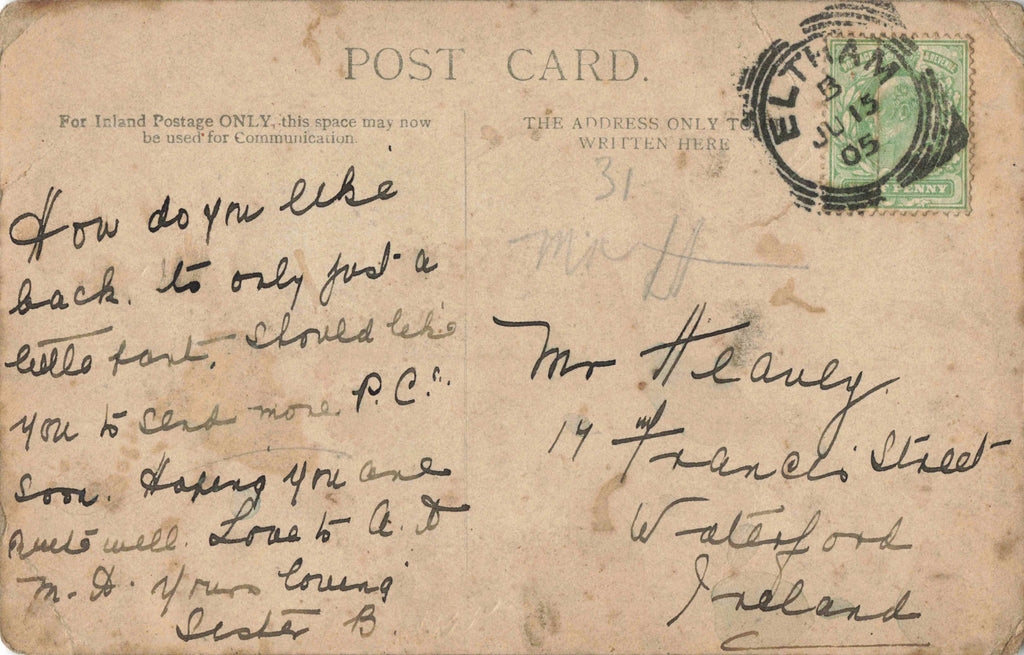 POST CARD.
For Inland Postage ONLY, this space may now
be used for Communication.
THE ADDRESS ONLY TO
WRITTEN HERE
ELTHAM
B
JU 15
05
PENNY
31
Mr H
How do you like
back. to only just a
little part. Should like
you to send more P.C.s
soon. Hoping you are
quite well. Love to A. H
M. H. Yours loving
Sister B.
Mr Heavey.
14 Francis Street
Waterford
Ireland